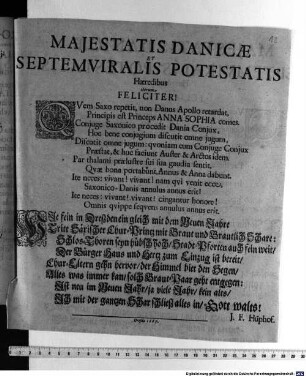 MAJESTATIS DANICÆ
ET
SEPTEMVIRALIS POTESTATIS
Hæredibus
FELICITER!
QVem Saxo repetit, non Danus Apollo retardat,
Principis est Princeps ANNA SOPHIA comes.
Conjuge Saxonico procedit Dania Conjux,
Hoc bene conjugium discutit omne jugum,
Discutit omne jugum: quoniam cum Conjuge Conjux
Præstat, & huc faciunt Auster & Arctos idem.
Par thalami prælustre sui sua gaudia sentit,
Quæ bona portabunt, Annus & Anna dabunt.
Ite neces: vivant! vivant! nam qui venit ecce,
Saxonico-Danis annulus annus erit!
Ite neces: vivant! vivant! cinguntur honore!
Omnis quippe sequens annulus annus erit.
WIe fein in Dreßden ein gleich mit dem Neuen Jahre
Tritt Sächischer Chur-Printz mit Braut und Brautlich Schare:
Schloß-Thoren seyn hübsch hoch/ Stadt-Pforten auch sein weit/
Der Bürger Haus und Hertz zum Einzug ist bereit/
Chur-Eltern gehn hervor/ der Himmel hier den Segen/
Alles was immer kan/ solch Braut-Paar geht entgegen:
Ist neu im Neuen Jahr/ ja viele Jahr/ sein alts/
Ich mit der gantzen Schar schließ alles in/ Gott walts!
J. F. Hüphof.